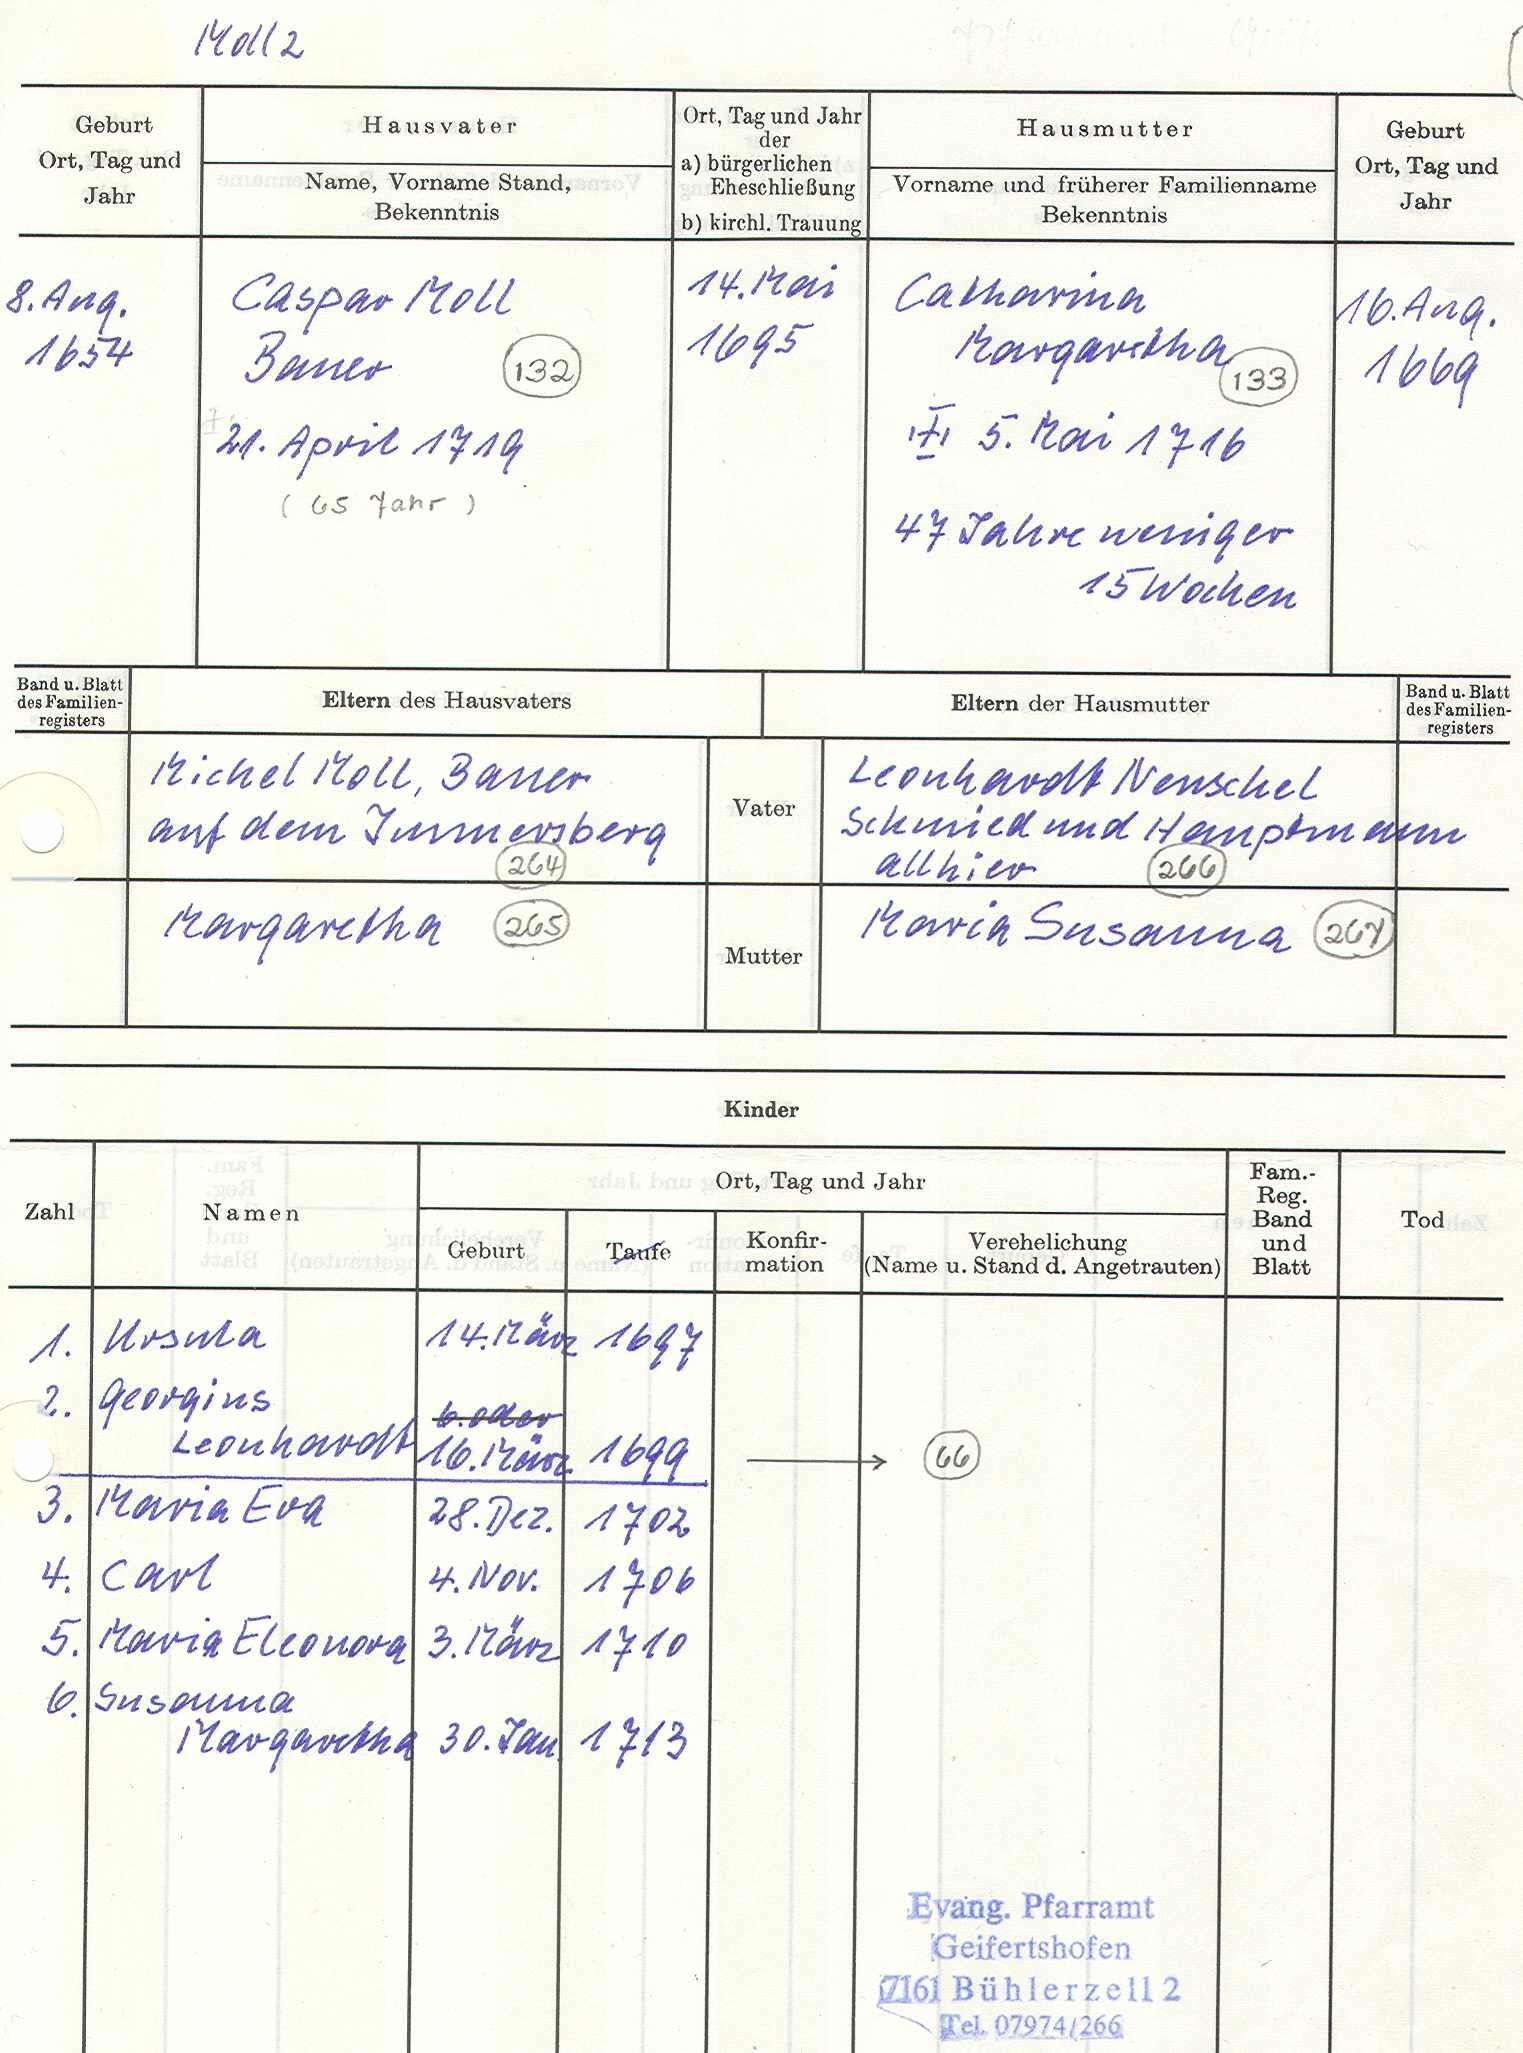 Moll 2
Geburt
Ort, Tag und
Jahr
Hausvater
Name, Vorname Stand,
Bekenntnis
Ort, Tag und Jahr
der
a) bürgerlichen
Eheschließung
b) kirchl. Trauung
Hausmutter
Vorname und früherer Familienname
Bekenntnis
Geburt
Ort, Tag und
Jahr
8. Aug.
1654
Caspar Moll
Bauer
132
21. April 1719
(65 Jahr)
14. Mai
1695
Catharina
Margaretha
133
5. Mai 1716
47 Jahre weniger
15 Wochen
16. Aug.
1669
Band u. Blatt
des Familien-
registers
Eltern des Hausvaters
Eltern der Hausmutter
Band u. Blatt
des Familien-
registers
Michel Moll, Bauer
auf dem Immersberg
264
Vater
Leonhardt Nenschel
Schmied und Hauptmann
allhier 266
Margaretha 265
Mutter
Maria Susanna 267
Kinder
Zahl
Namen
Ort, Tag und Jahr
Geburt
Taufe
Konfir-
mation
Verehelichung
(Name u. Stand d. Angetrauten)
Fam.-
Reg.
Band
und
Blatt
Tod
1. Ursula 14. März 1697
2. Georgius
6. oder
Leonhardt 16. März 1699 → 66
3. Maria Eva 28. Dez. 1702
4. Carl 4. Nov. 1706
5. Maria Eleonora 3. März 1710
6. Susanna
Margaretha 30. Jan. 1713
Evang. Pfarramt
Geifertshofen
7161 Bühlerzell 2
Tel. 07974/266